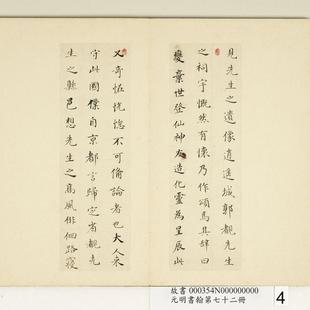 見先生之遺像逍遙城郭覩先生
之祠宇慨然有懷乃作頌焉其辭曰
變棄世登仙神友造化靈為星辰此
又奇怪恍惚不可備論者也大人來
守此國僕自京都言歸定省覩先
生之縣邑想先生之高風俳佪路寢
故書 000354N000000000
元明書翰第七十二冊
4